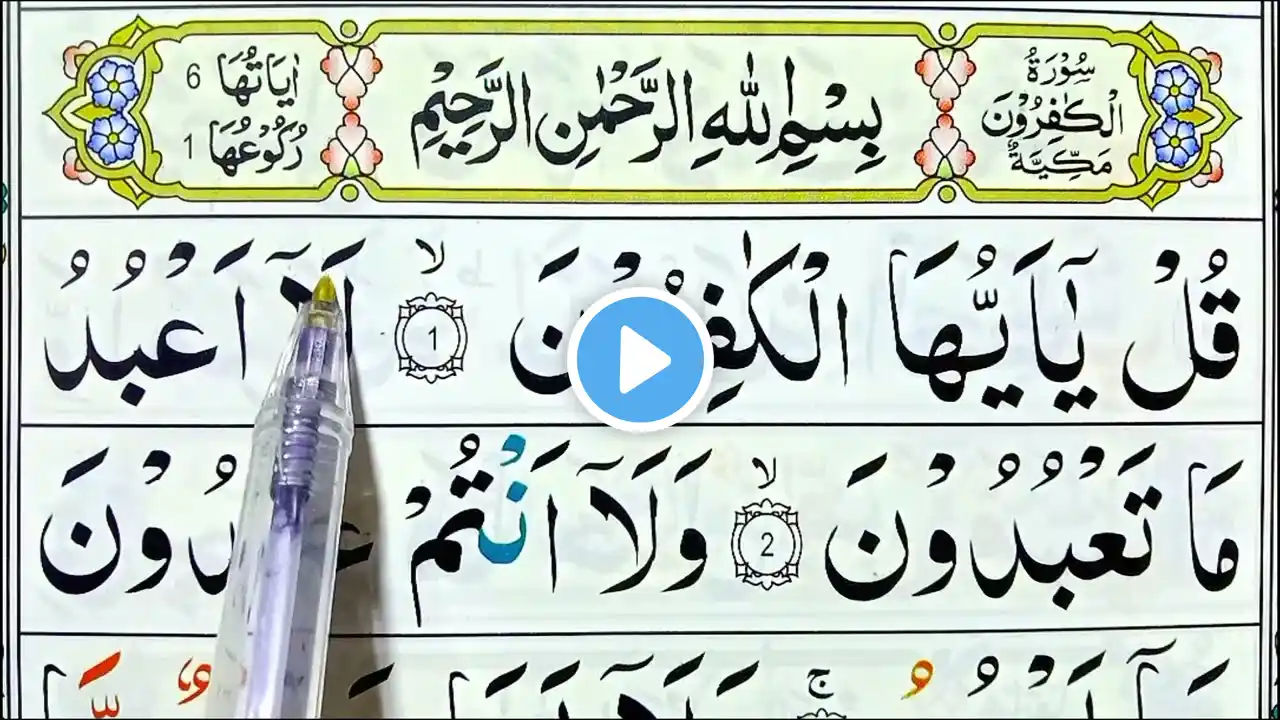 سُوْرَةُ الْكٰفِرُوْنَ مَكِّيَّةٌ
بِسْمِ اللّٰهِ الرَّحْمٰنِ الرَّحِيْمِ
اٰيَاتُهَا 6
رُكُوْعُهَا 1
قُلْ يٰۤاَيُّهَا الْكٰفِرُوْنَ ۙ 1 لَاۤ اَعْبُدُ
مَا تَعْبُدُوْنَ ۙ 2 وَلَاۤ اَنْتُمْ